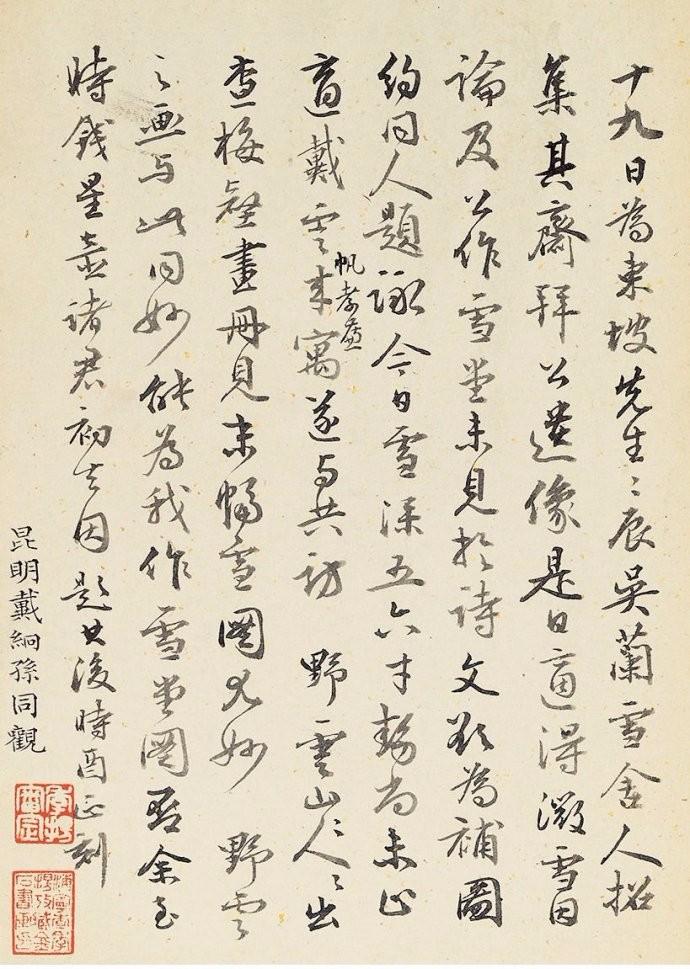 十九日為東坡先生〻辰吳蘭雪舍人招
集其齋拜公遺像是日適得微雪因
論及公作雪堂未見於詩文欲為補圖
約同人題詠今日雪深五六寸勢尚未止
適戴雲帆孝廉來寓遂与共訪 野雲山人〻出
查梅壑畫冊見末幅雪圖尤妙 野雲
之画与此同妙能為我作雪堂圖否余至
時錢星壺諸君初去因題其後時酉正刻
昆明戴絅孫同觀